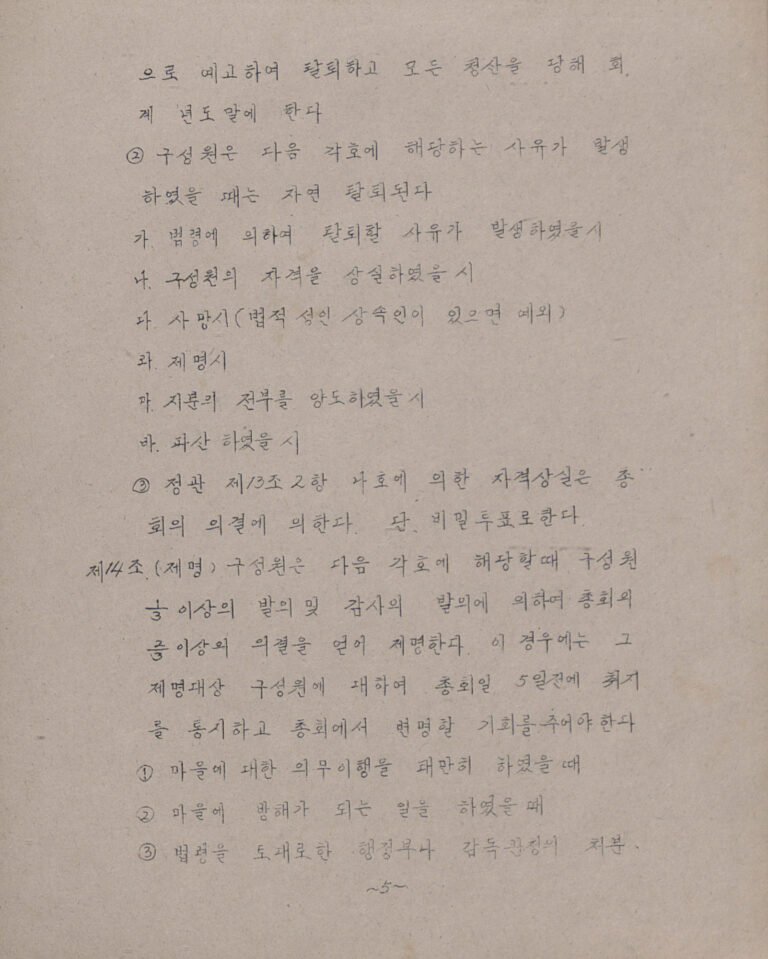 으로 예고하여 탈퇴하고 모든 청산을 당해 회
계 년도말에 한다
② 구성원은 다음 각호에 해당하는 사유가 발생
하였을 때는 자연 탈퇴된다
가. 법령에 의하여 탈퇴할 사유가 발생하였을시
나. 구성원의 자격을 상실하였을 시
다. 사망시(법적 성인 상속인이 있으면 예외)
라. 제명시
마. 지분의 전부를 양도하였을시
바. 파산 하였을 시
③ 정관 제13조 2항 나호에 의한 자격상실은 총
회의 의결에 의한다. 단. 비밀투표로한다.
제14조.(제명) 구성원은 다음 각호에 해당할때 구성원
⅓ 이상의 발의 및 감사의 발의에 의하여 총회의
⅔ 이상의 의결을 얻어 제명한다. 이 경우에는 그
제명대상 구성원에 대하여 총회일 5일전에 취지
를 통시하고 총회에서 변명할 기회를 주어야한다
① 마을에 대한 의무이행을 태만히 하였을 때
② 마을에 방해가 되는 일을 하였을 때
③ 법령을 토대로한 행정부나 감독관청의 처분.
~5~